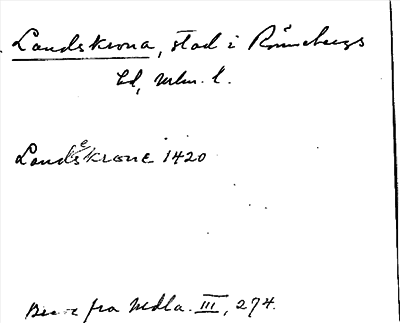 Landskrona, stad i Rönnebergs
hd, Mlm. l.
Landeskrone 1420
Breve fra Mdla. III, 274.